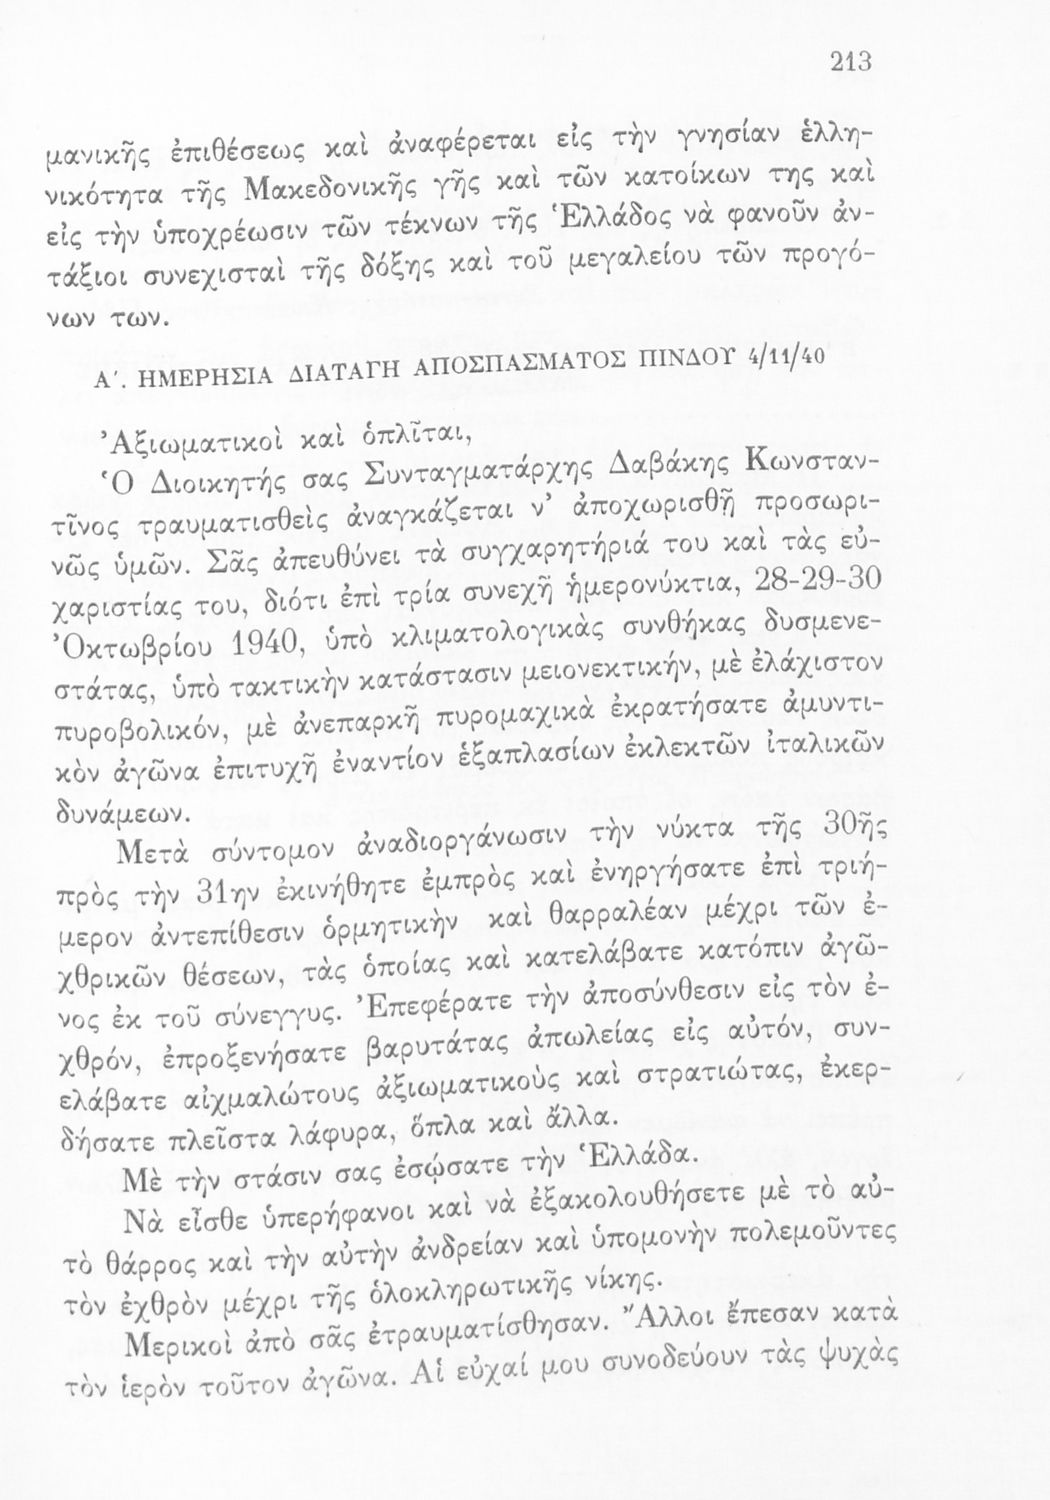 213
μανικῆς ἐπιθέσεως καὶ ἀναφέρεται εἰς τὴν γνησίαν ἑλλη-
νικότητα τῆς Μακεδονικῆς γῆς καὶ τῶν κατοίκων της καὶ
εἰς τὴν ὑποχρέωσιν τῶν τέκνων τῆς Ἑλλάδος νὰ φανοῦν ἀν-
τάξιοι συνεχισταὶ τῆς δόξης καὶ τοῦ μεγαλείου τῶν προγό-
νων των.
Α΄. ΗΜΕΡΗΣΙΑ ΔΙΑΤΑΓΗ ΑΠΟΣΠΑΣΜΑΤΟΣ ΠΙΝΔΟΥ 4/11/40
Ἀξιωματικοὶ καὶ ὁπλῖται,
Ὁ Διοικητής σας Συνταγματάρχης Δαβάκης Κωνσταν-
τῖνος τραυματισθεὶς ἀναγκάζεται ν᾿ ἀποχωρισθῇ προσωρι-
νῶς ὑμῶν. Σᾶς ἀπευθύνει τὰ συγχαρητήριά του καὶ τὰς εὐ-
χαριστίας του, διότι ἐπὶ τρία συνεχῆ ἡμερονύκτια, 28-29-30
Ὀκτωβρίου 1940, ὑπὸ κλιματολογικὰς συνθήκας δυσμενε-
στάτας, ὑπὸ τακτικὴν κατάστασιν μειονεκτικήν, μὲ ἐλάχιστον
πυροβολικόν, μὲ ἀνεπαρκῆ πυρομαχικὰ ἐκρατήσατε ἀμυντι-
κὸν ἀγῶνα ἐπιτυχῆ ἐναντίον ἑξαπλασίων ἐκλεκτῶν ἰταλικῶν
δυνάμεων.
Μετὰ σύντομον ἀναδιοργάνωσιν τὴν νύκτα τῆς 30ῆς
πρὸς τὴν 31ην ἐκινήθητε ἐμπρὸς καὶ ἐνηργήσατε ἐπὶ τριή-
μερον ἀντεπίθεσιν ὁρμητικὴν καὶ θαρραλέαν μέχρι τῶν ἐ-
χθρικῶν θέσεων, τὰς ὁποίας καὶ κατελάβατε κατόπιν ἀγῶ-
νος ἐκ τοῦ σύνεγγυς. Ἐπεφέρατε τὴν ἀποσύνθεσιν εἰς τὸν ἐ-
χθρόν, ἐπροξενήσατε βαρυτάτας ἀπωλείας εἰς αὐτόν, συν-
ελάβατε αἰχμαλώτους ἀξιωματικοὺς καὶ στρατιώτας, ἐκερ-
δήσατε πλεῖστα λάφυρα, ὅπλα καὶ ἄλλα.
Μὲ τὴν στάσιν σας ἐσῴσατε τὴν Ἑλλάδα.
Νὰ εἶσθε ὑπερήφανοι καὶ νὰ ἐξακολουθήσετε μὲ τὸ αὐ-
τὸ θάρρος καὶ τὴν αὐτὴν ἀνδρείαν καὶ ὑπομονὴν πολεμοῦντες
τὸν ἐχθρὸν μέχρι τῆς ὁλοκληρωτικῆς νίκης.
Μερικοὶ ἀπὸ σᾶς ἐτραυματίσθησαν. Ἄλλοι ἔπεσαν κατὰ
τὸν ἱερὸν τοῦτον ἀγῶνα. Αἱ εὐχαί μου συνοδεύουν τὰς ψυχὰς